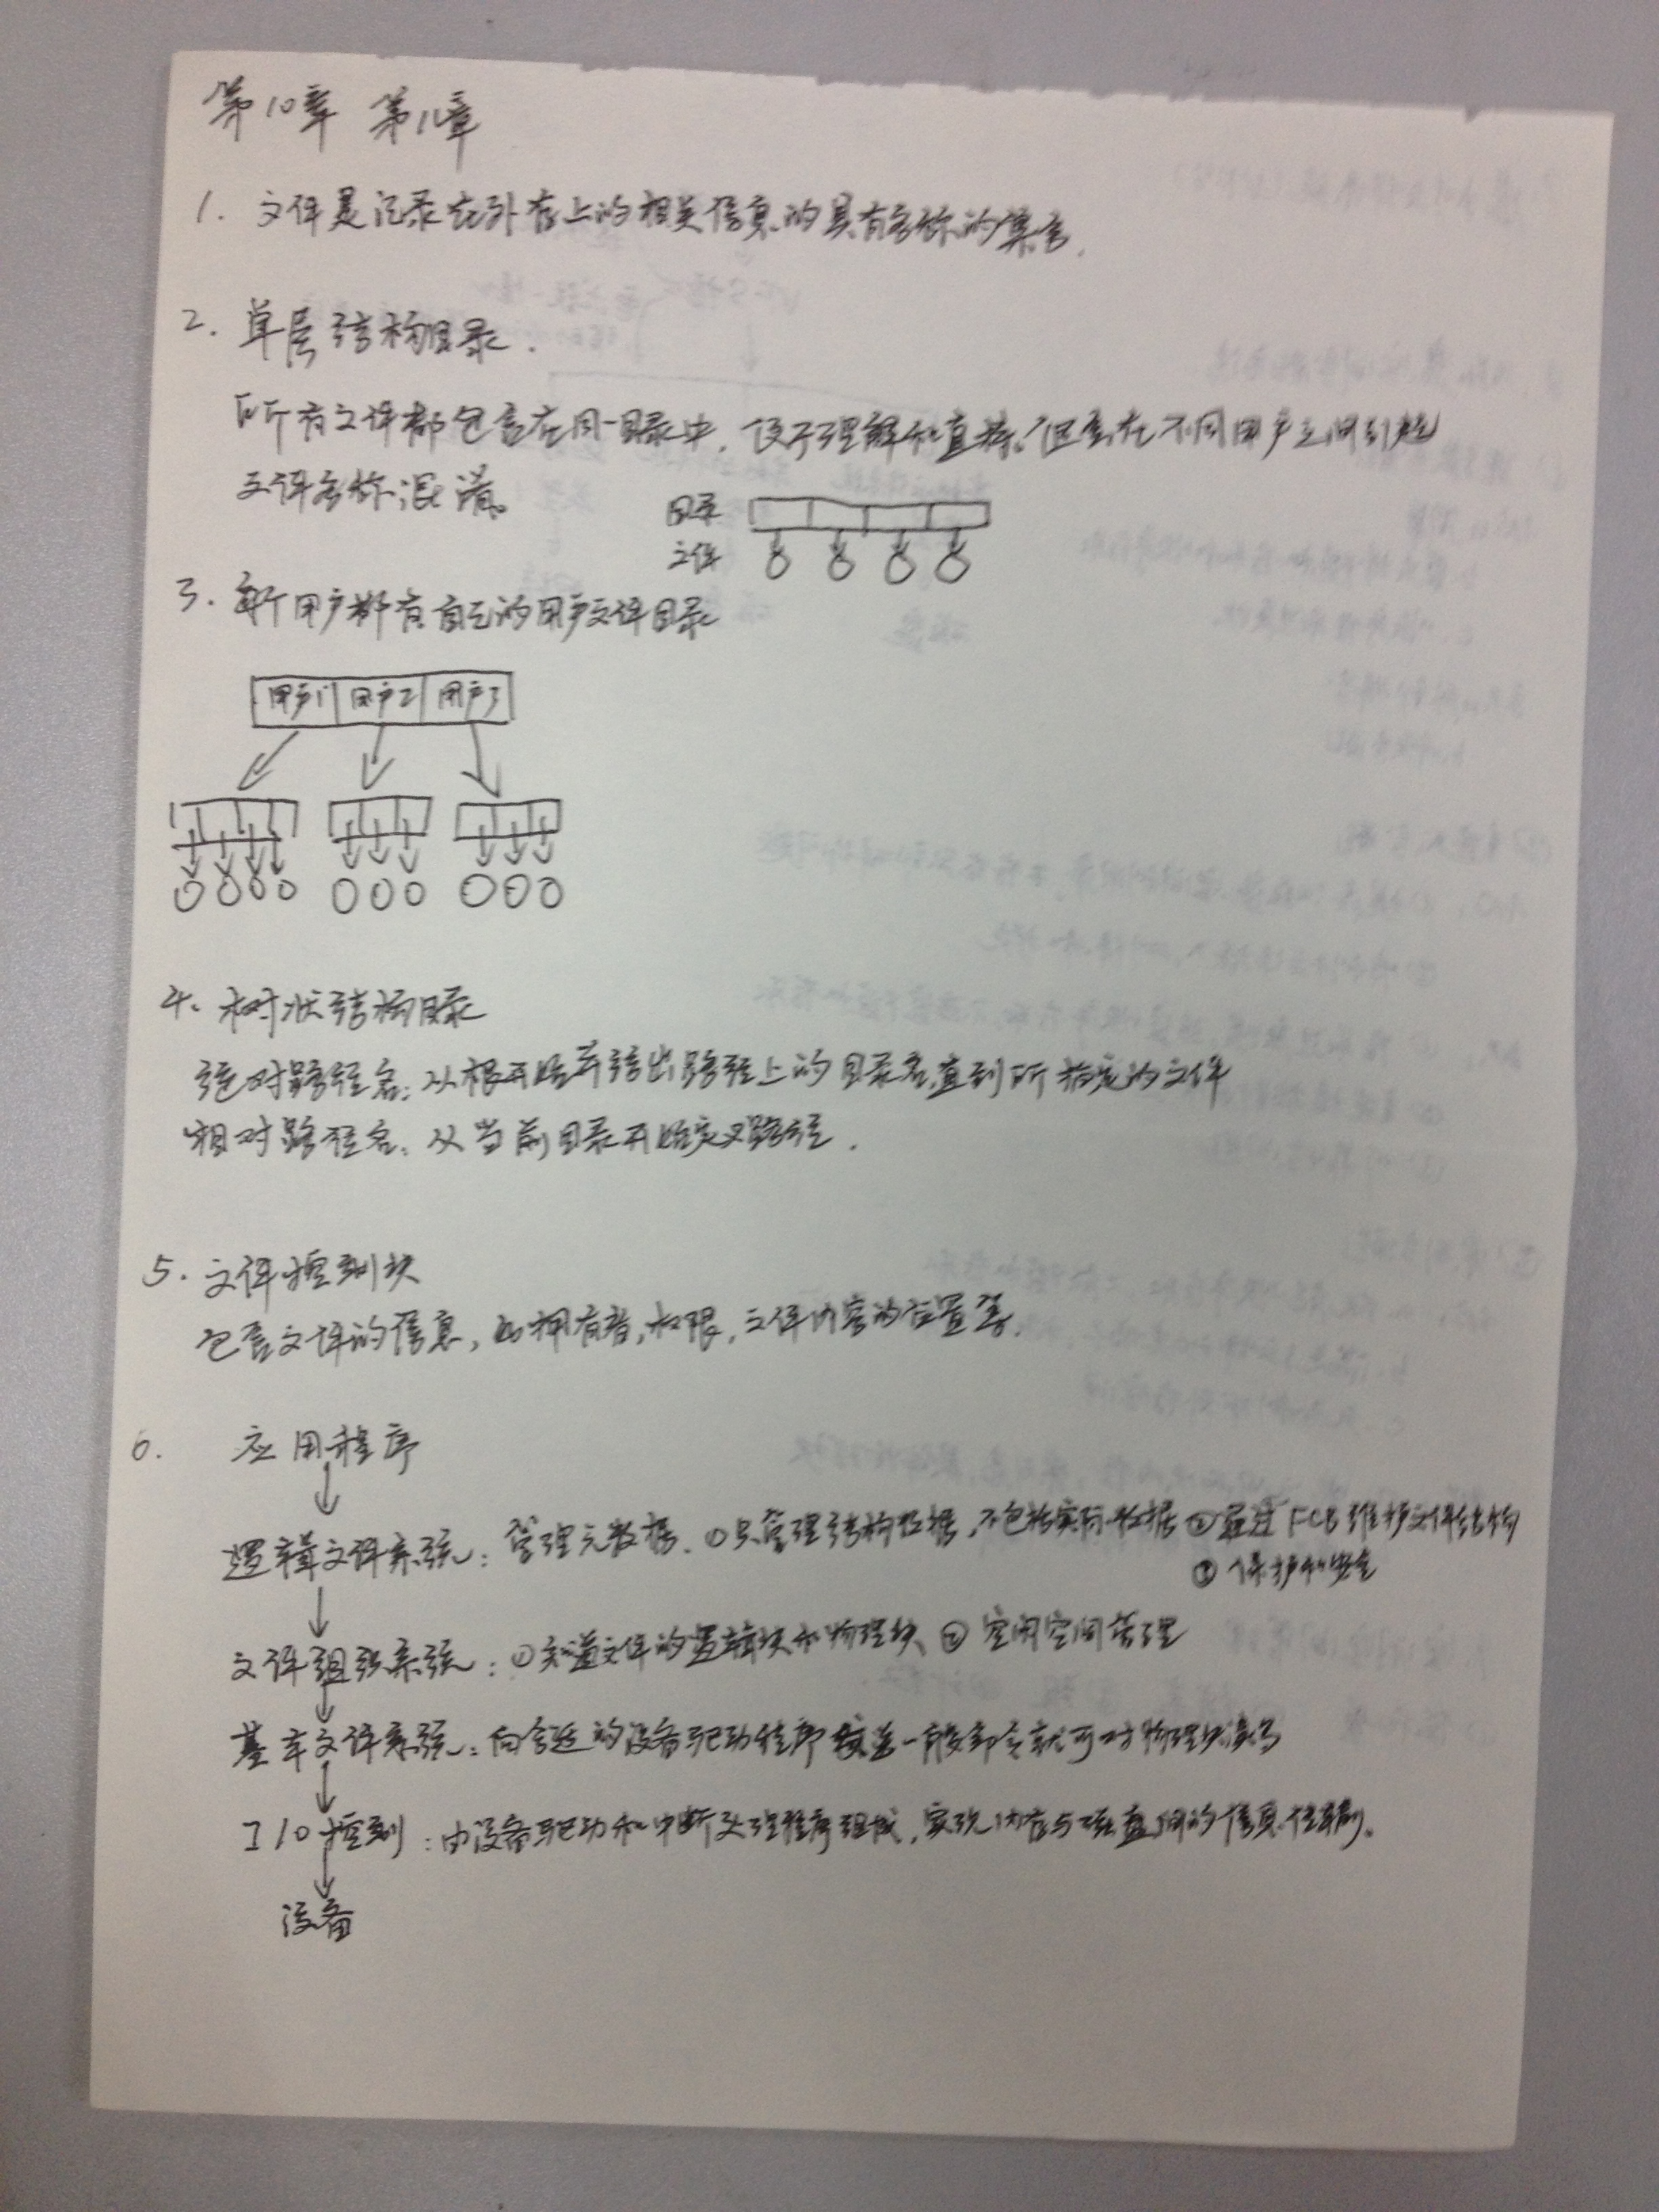 第10章 第11章
1. 文件是记录在外存上的相关信息的具有名称的集合.
2. 单层结构目录.
所有文件都包含在同一目录中, 便于理解和支持!但会在不同用户之间引起
文件名称混淆。
目录
文件
3. 每个用户都有自己的用户文件目录
用户1 用户2 用户3
4. 树状结构目录
绝对路径名: 从根开始并给出路径上的目录名直到所指定的文件
相对路径名: 从当前目录开始定义路径.
5. 文件控制块
包含文件的信息, 如拥有者, 权限, 文件内容的位置等.
6. 应用程序
逻辑文件系统: 管理元数据. ①只管理结构数据, 不包括实际数据 ②通过FCB维护文件结构
③ 保护和安全
文件组织系统: ①知道文件的逻辑块和物理块 ② 空闲空间管理
基本文件系统: 向合适的设备驱动程序发送一般命令就可对物理块读写
I/O控制: 由设备驱动和中断处理程序组成, 实现内存与磁盘间的信息传输.
设备